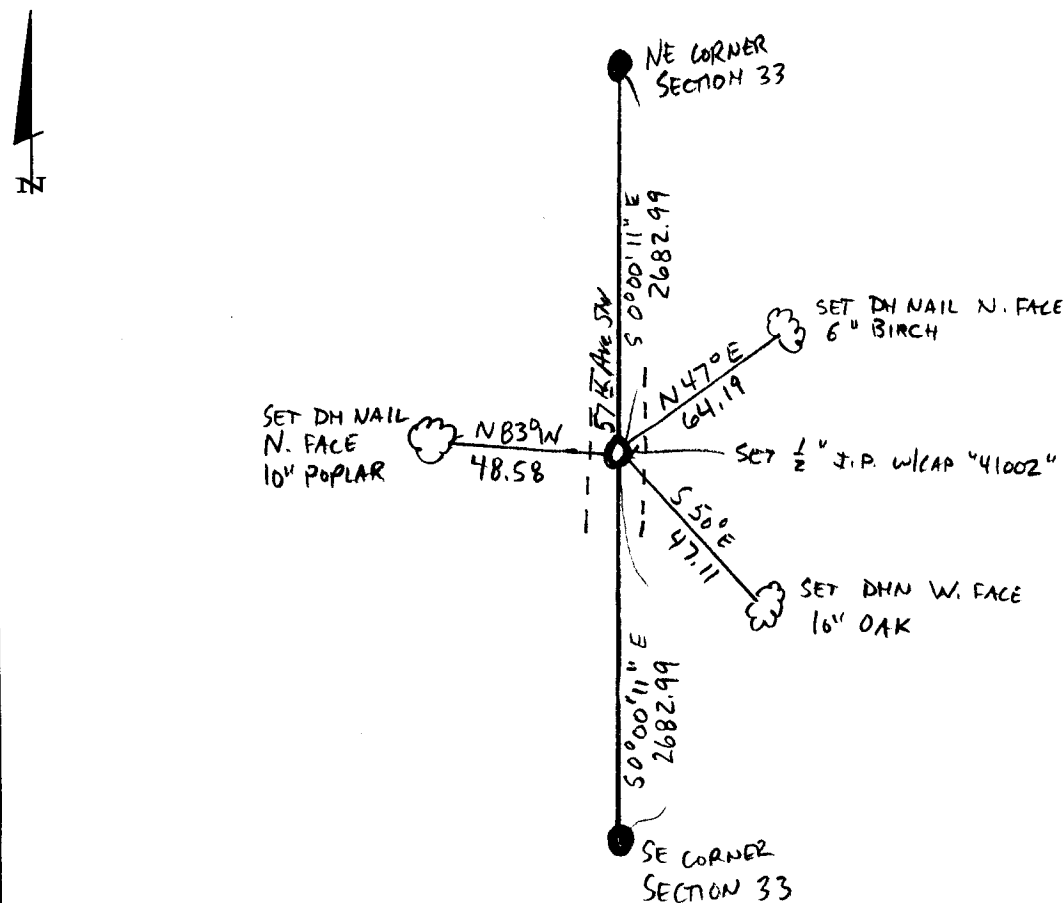 NE CORNER
SECTION 33
N
S 0°00'11" E
2682.99
57th Ave SW
SET DH NAIL N. FACE
6" BIRCH
N 47° E
64.19
SET DH NAIL
N. FACE
10" POPLAR
N 83° W
48.58
SET 1/2" I.P. W/CAP "41002"
S 50° E
47.11
SET DHN W. FACE
10" OAK
S 0°00'11" E
2682.99
SE CORNER
SECTION 33